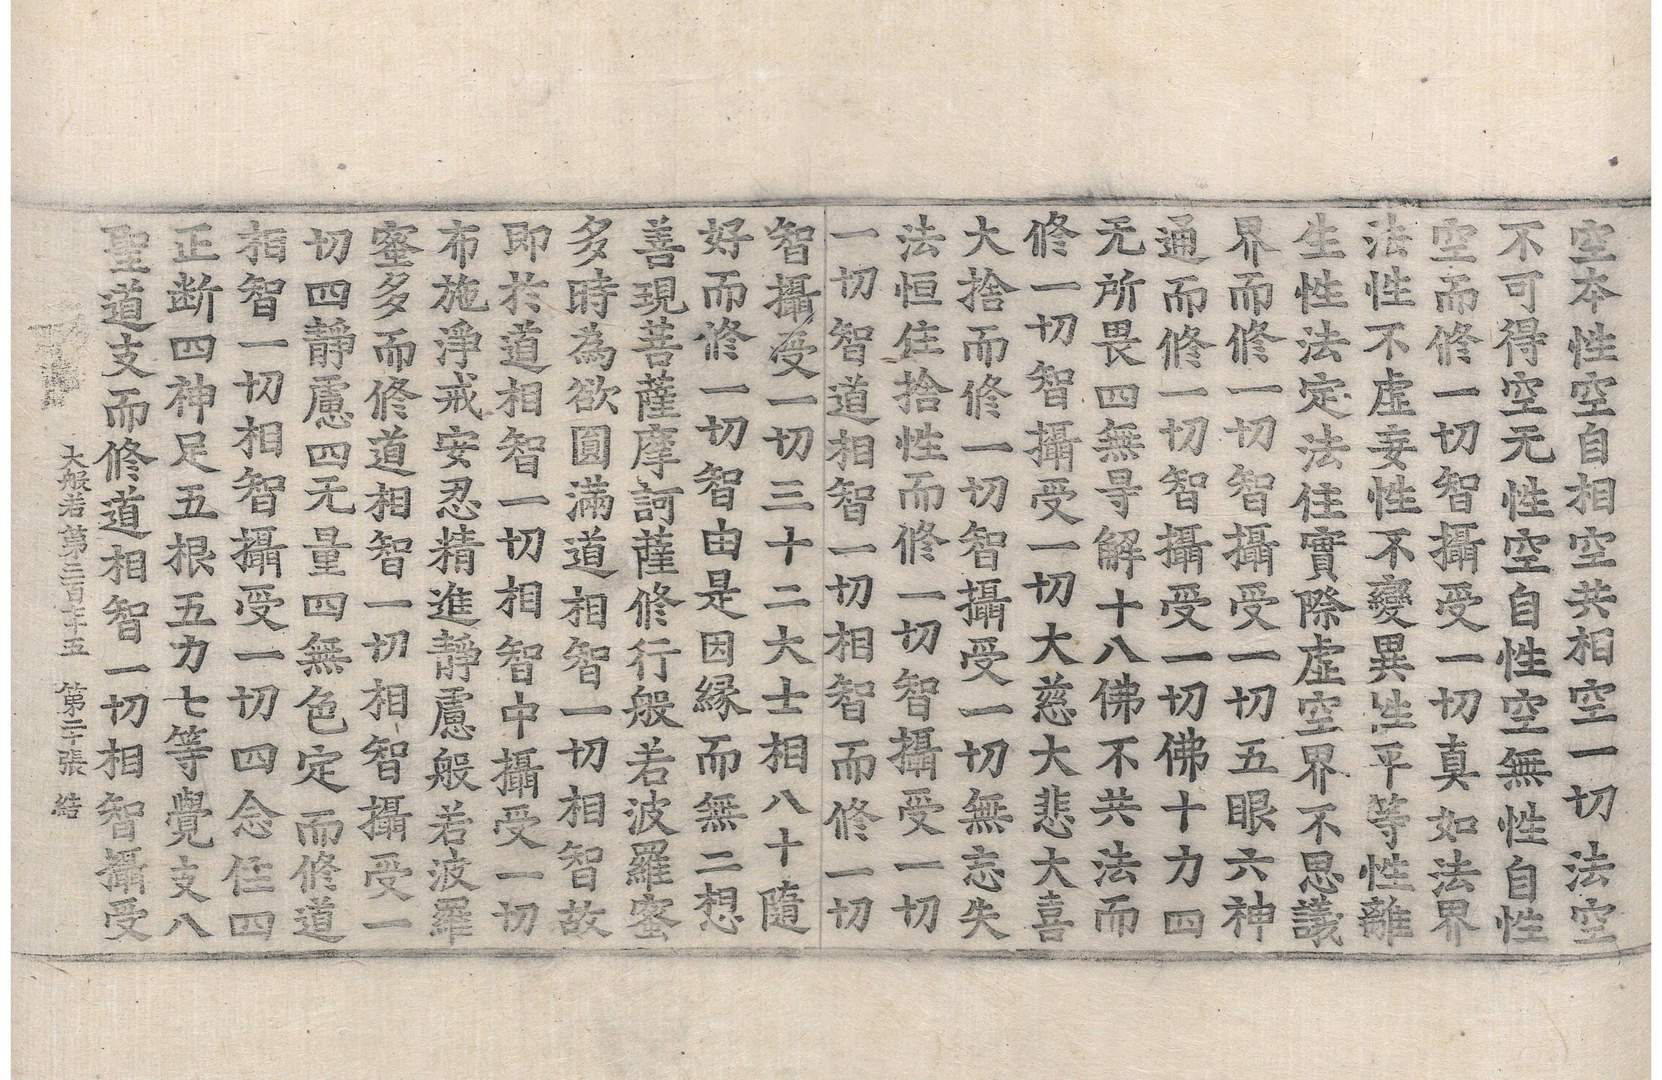 空本性空自相空共相空一切法空
不可得空无性空自性空無性自性
空而修一切智攝受一切真如法界
法性不虛妄性不變異性平等性離
生性法定法住實際虛空界不思議
界而修一切智攝受一切五眼六神
通而修一切智攝受一切佛十力四
无所畏四無㝵解十八佛不共法而
修一切智攝受一切大慈大悲大喜
大捨而修一切智攝受一切無忘失
法恒住捨性而修一切智攝受一切
一切智道相智一切相智而修一切
智攝受一切三十二大士相八十隨
好而修一切智由是因緣而無二想
善現菩薩摩訶薩修行般若波羅蜜
多時為欲圓滿道相智一切相智故
即於道相智一切相智中攝受一切
布施淨戒安忍精進靜慮般若波羅
蜜多而修道相智一切相智攝受一
切四靜慮四无量四無色定而修道
相智一切相智攝受一切四念住四
正斷四神足五根五力七等覺支八
聖道支而修道相智一切相智攝受
大般若第三百七十五 第二十張